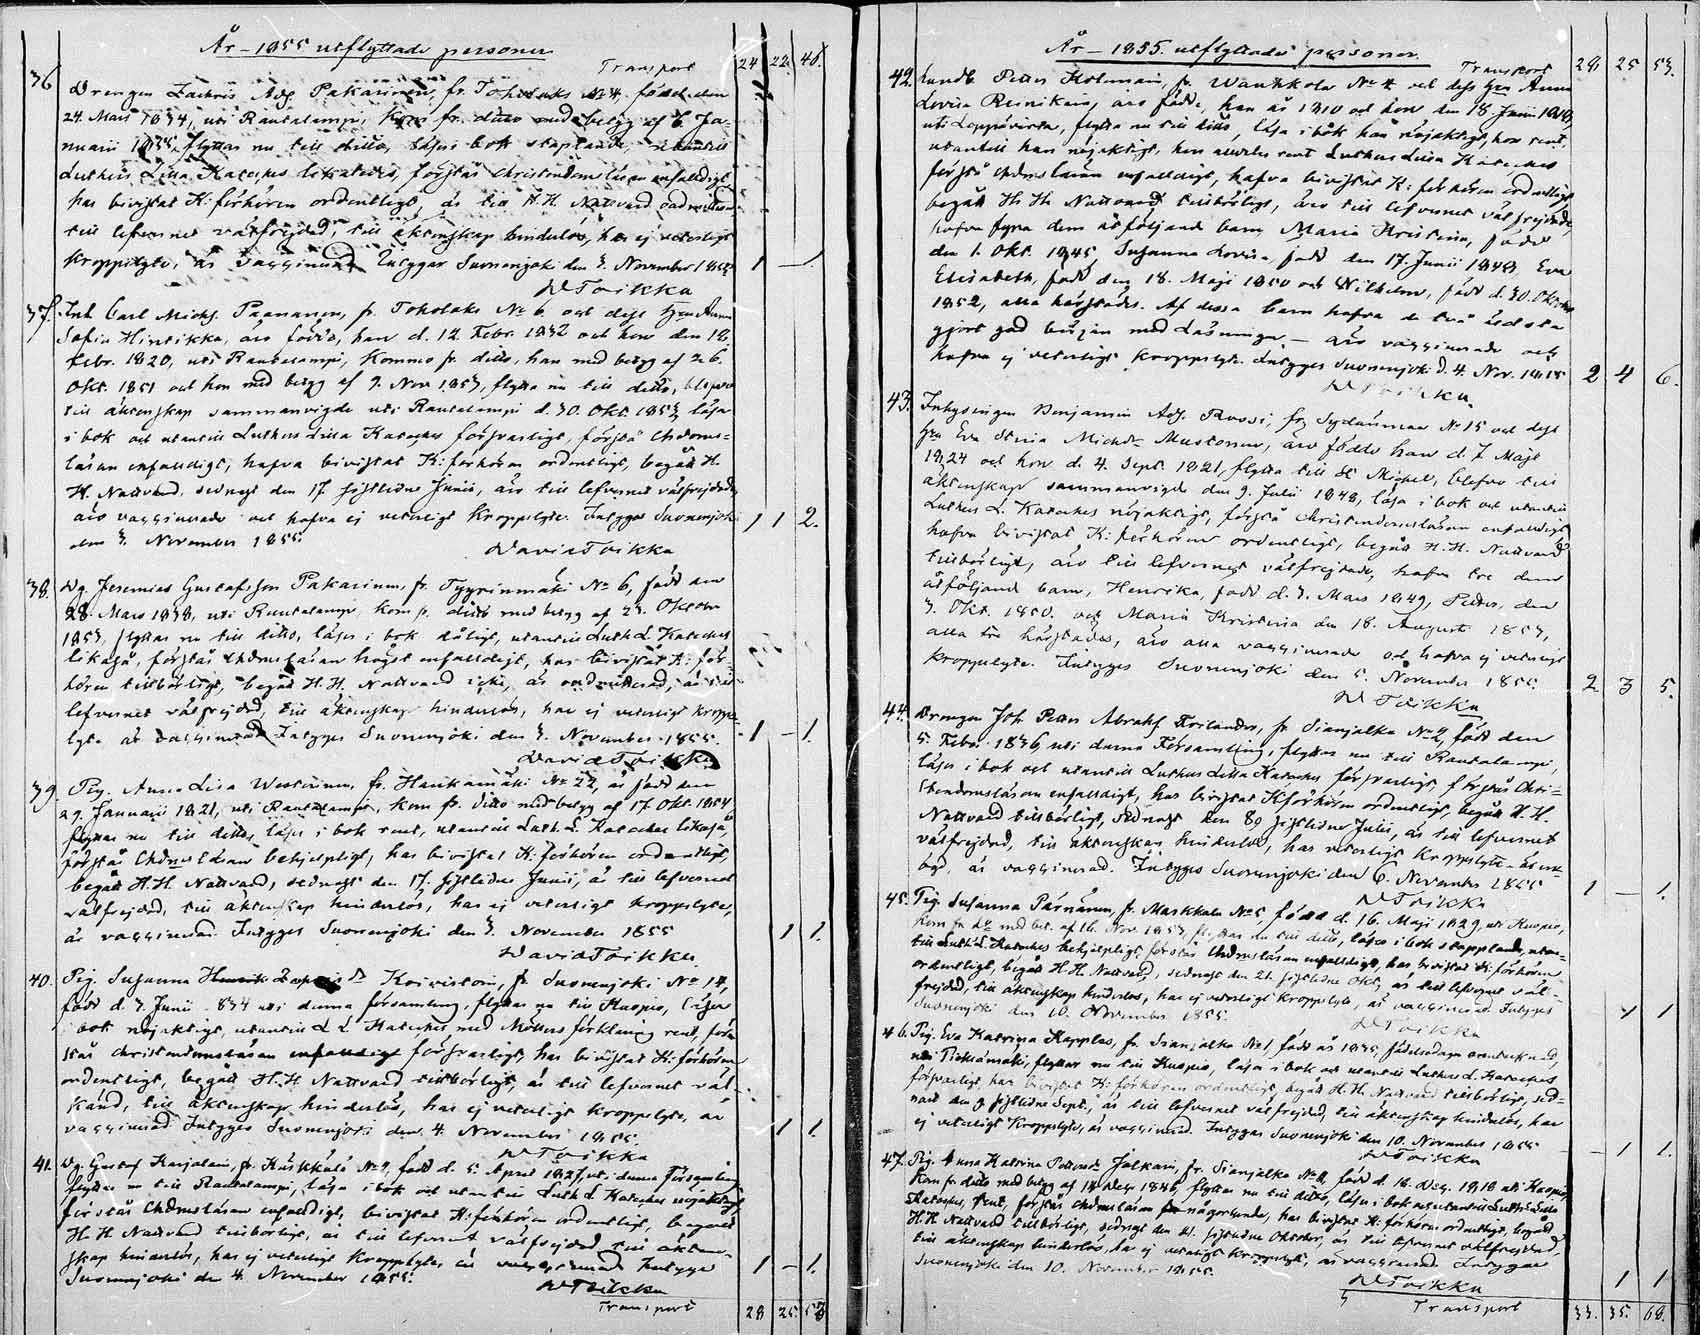 År - 1855 utflyttade personer
Transport 24 22. 46.
36 Drengen Zachris Adg Pakarinen, fr. Toholaks No 4. född den
24. Mars 1834, uti Rautalampi, Kom fr. ditto med betyg af 6. Ja-
nuarii 1855, flyttar nu till ditto, läser i bok staplande, utantill
Luthers Lilla Kateches likaledes, förstår christendomsläran enfaldigt,
har bivistat K: förhören ordentligt, är till H. H. Nattvard oadmitterad
till lefvernet välfrejdad, till äktenskap hinderlös, har ej veterligt
kroppslyte, är vaccinerad Intygar Suonenjoki den 3. November 1855 1 — 1.
D Toikka
37. Inh. Carl Michs. Paananen, fr. Toholaks No 6 och dess hru Anna
Sofia Hintikka, äro födda, han d. 12 Febr. 1832 och hon den 12.
Febr. 1820, uti Rautalampi, Kommo fr. ditto, han med betyg af 26.
Okt. 1851 och hon med betyg af 9. Nov 1853, flytta nu till ditto, blefvo
till äktenskap sammanvigde uti Rautalampi d. 30. Okt. 1853, läsa
i bok och utantill Luthers Lilla Kateches försvarligt, förstå Chdoms=
läran enfaldigt, hafva bivistat K: förhören ordentligt, begått H.
H. Nattvard, sednast den 17 sistledne Junii, äro till lefvernet välfrejdade
äro vaccinerade och hafva ej veterligt Kroppslyte. Intygar Suonenjoki 1 1 2.
den 3. November 1855.
David Toikka
38. Dg. Jeremias Gustafsson Pakarinen, fr. Tyyrinmäki No 6, född den
28. Mars 1838, uti Rautalampi, kom fr. ditto med betyg af 23. Oktober
1853, flyttar nu till ditto, läser i bok dåligt, utantill Luth L. Kateches
likaså, förstår Chdmsläran högst enfaldigt, har bivistat K: för-
hören tillbörligt, begått H. H. Nattvard icke, är oadmitterad, är till
lefvernet välfrejdad, till äktenskap hinderlös, har ej veterligt kropps-
lyte är vaccinerad Intyges Suonenjoki den 3. November 1855. 1 — 1.
David Toikka
39. Pig. Anna Lisa Westerinen, fr. Haukamäki No 22, är född den
29. Januarii 1821, uti Rautalampi, kom fr. ditto med betyg af 17. Okt. 1854
flyttar nu till ditto, läser i bok rent, utantill Luth. L. Kateches likaså,
förstår Chdmsläran behjelpligt, har bivistat K: förhören ordentligt,
begått H. H. Nattvard, sednast den 17. sistledne Junii, är till lefvernet
välfrejdad, till äktenskap hinderlös, har ej veterligt kroppslyte,
är vaccinerad. Intyges Suonenjoki den 3. November 1855 1 1.
David Toikka
40. Pig. Susanna Koivistoin, fr Suonenjoki No 14,
född d. 3 Junii 834 uti denna församling, flyttar nu till Kuopio, läser
i bok nöjaktigt, utantill L. L. Kateches med Möllers förklaring rent, för-
står christendomsläran försvarligt, har bivistat K: förhören
ordentligt, begått H. H Nattvard tillbörligt, är till lefvernet väl-
känd, till äktenskap hinderlös, har ej veterligt kroppslyte, är
vaccinerad Intyges Suonenjoki den 4. November 1855. 1 1.
D Toikka
41. Dg. Gustaf Karjalain, fr. Kärkkälä No 9, född d. 5. April 1827, uti denna Församling
flyttar nu till Rautalampi, läser i bok och utantill Luth L Kateches nöjaktigt,
förstår Chdmsläran enfaldigt, bivistat K: förhören ordentligt, begått
H. H Nattvard tillbörligt, är till lefvernet välfrejdad till äkten-
skap hinderlös, har ej veterligt Kroppslyte, är vaccinerad Intyges 1 — 1.
Suonenjoki den 4. November 1855.
D Toikka
Transport 28 25. 53
År - 1855. utflyttade personer.
Transport 28 25 53.
42. Landb. Petter Holmain, fr. Wanhkola No 4 och dess hru Anna
Lovisa Reinikain, äro födda, han år 1810 och hon den 18. Junii
uti Leppävirta, flytta nu till ditto, läsa i bok han nöjaktigt, hon rent,
utantill han nöjaktigt, hon alldeles rent Luthers Lilla Kateches
förstå Chdmsläran enfaldigt, hafva bivistat K: förhören ordentligt
begått H. H. Nattvard tillbörligt, äro till lefvernet välfrejdade,
hafva fyra dem åtföljande barn Maria Kristina, född
den 1. Okt. 1845, Susanna Lovisa, född den 17. Junii 1848, Eva
Elisabeth, född den 18. Maji 1850 och Wilhelm, född d. 30. Oktober
1852, alla härstädes. Af dessa barn hafva de två äldsta
gjort god början med Läsningen, — äro vaccinerade och
hafva ej veterligt kroppslyte. Intyges Suonenjoki d. 4. Nov. 1855 2 4 6.
D Toikka.
43. Inhysingen Benjamin Adg. Roossi, fr. Sydänmaa No 15 och dess
hru Eva Stina Michdr Mustonen, äro födda han d. 7 Maji
1824 och hon d. 4. Sept. 1821, flytta till St Michel, blefvo till
äktenskap sammanvigde den 9. Julii 1848, läsa i bok och utantill
Luthers L. Kateches nöjaktigt, förstå Christendomsläran enfaldigt
hafva bivistat K: förhören ordentligt, begått H. H. Nattvard
tillbörligt, äro till lefvernet välfrejdade, hafva tre dem
åtföljande barn, Henrika, född d. 3. Mars 1849, Petter, den
3. Okt. 1850. och Maria Kristina den 18. Augusti 1853,
alla tre härstädes, äro alla vaccinerade och hafva ej veterligt
kroppslyte. Intyges Suonenjoki den 5. November 1855. 2 3 5.
D Toikka
44. Drengen Joh. Petter Abrahs Torilander, fr. Sianjalka No 2, född den
5. Febr. 1836, uti denna Församling, flyttar nu till Rautalampi,
läser i bok och utantill Luthers Lilla Kateches försvarligt, förstår Chri=
stendomsläran enfaldigt, har bivistat K förhören ordentligt, begått H. H.
Nattvard tillbörligt, sednast den 8. sistledne Julii, är till lefvernet
välfrejdad, till äktenskap hinderlös, har veterligt kroppslyte — är en-
ögd, är vaccinerad. Intyges Suonenjoki den 6. November 1855 1 — 1.
D Toikka
45. Pig. Susanna Pärnänen, fr. Markkala No 5 född d. 16. Maji 1829, uti Kuopio,
kom fr do med bet. af 16. Nov. 1853, flyttar nu till ditto, läser i bok stapplande, utan-
till Luth L. Kateches behjelpligt, förstår Chdmsläran enfaldigt, har bivistat K: förhören
ordentligt, begått H. H. Nattvard, sednast den 21. sistledne Okt., är till lefvernet väl-
frejdad, till äktenskap hinderlös, har ej veterligt kroppslyte, är vaccinerad. Intyges
Suonenjoki den 10. November 1855. 1 1
D Toikka
46. Pig. Eva Katrina Kapplas, fr. Sianjalka No 1, född år 1835, födelsedagen oantecknad,
uti Pieksämäki, flyttar nu till Kuopio, läser i bok och utantill Luthers L. Kateches
försvarligt, har bivistat K: förhören ordentligt, begått H. H. Nattvard tillbörligt, sed=
nast den 9 sistledne Sept., är till lefvernet välfrejdad, till äktenskap hinderlös, har
ej veterligt Kroppslyte, är vaccinerad. Intyges Suonenjoki den 10. November 1855 — 1 1.
D Toikka
47. Pig. Anna Katrina Pettersdr Jalkain, fr. Sianjalka No 2, född d. 16. Dec. 1818 uti Kuopio,
Kom fr. ditto med betyg af 14 Sep 1846, flyttar nu till ditto, läser i bok och utantill Luthers Lilla
Kateches, rent, förstår Chdmsläran någorlunda, har bivistat K: förhören ordentligt, begått
H. H Nattvard tillbörligt, sednast den 21. sistledne Oktober, är till lefvernet välfrejdad,
till äktenskap hinderlös, har ej veterligt kroppslyte, är vaccinerad. Intyges
Suonenjoki den 10. November 1855. 1 1
D Toikka
Transport 33. 35. 68.